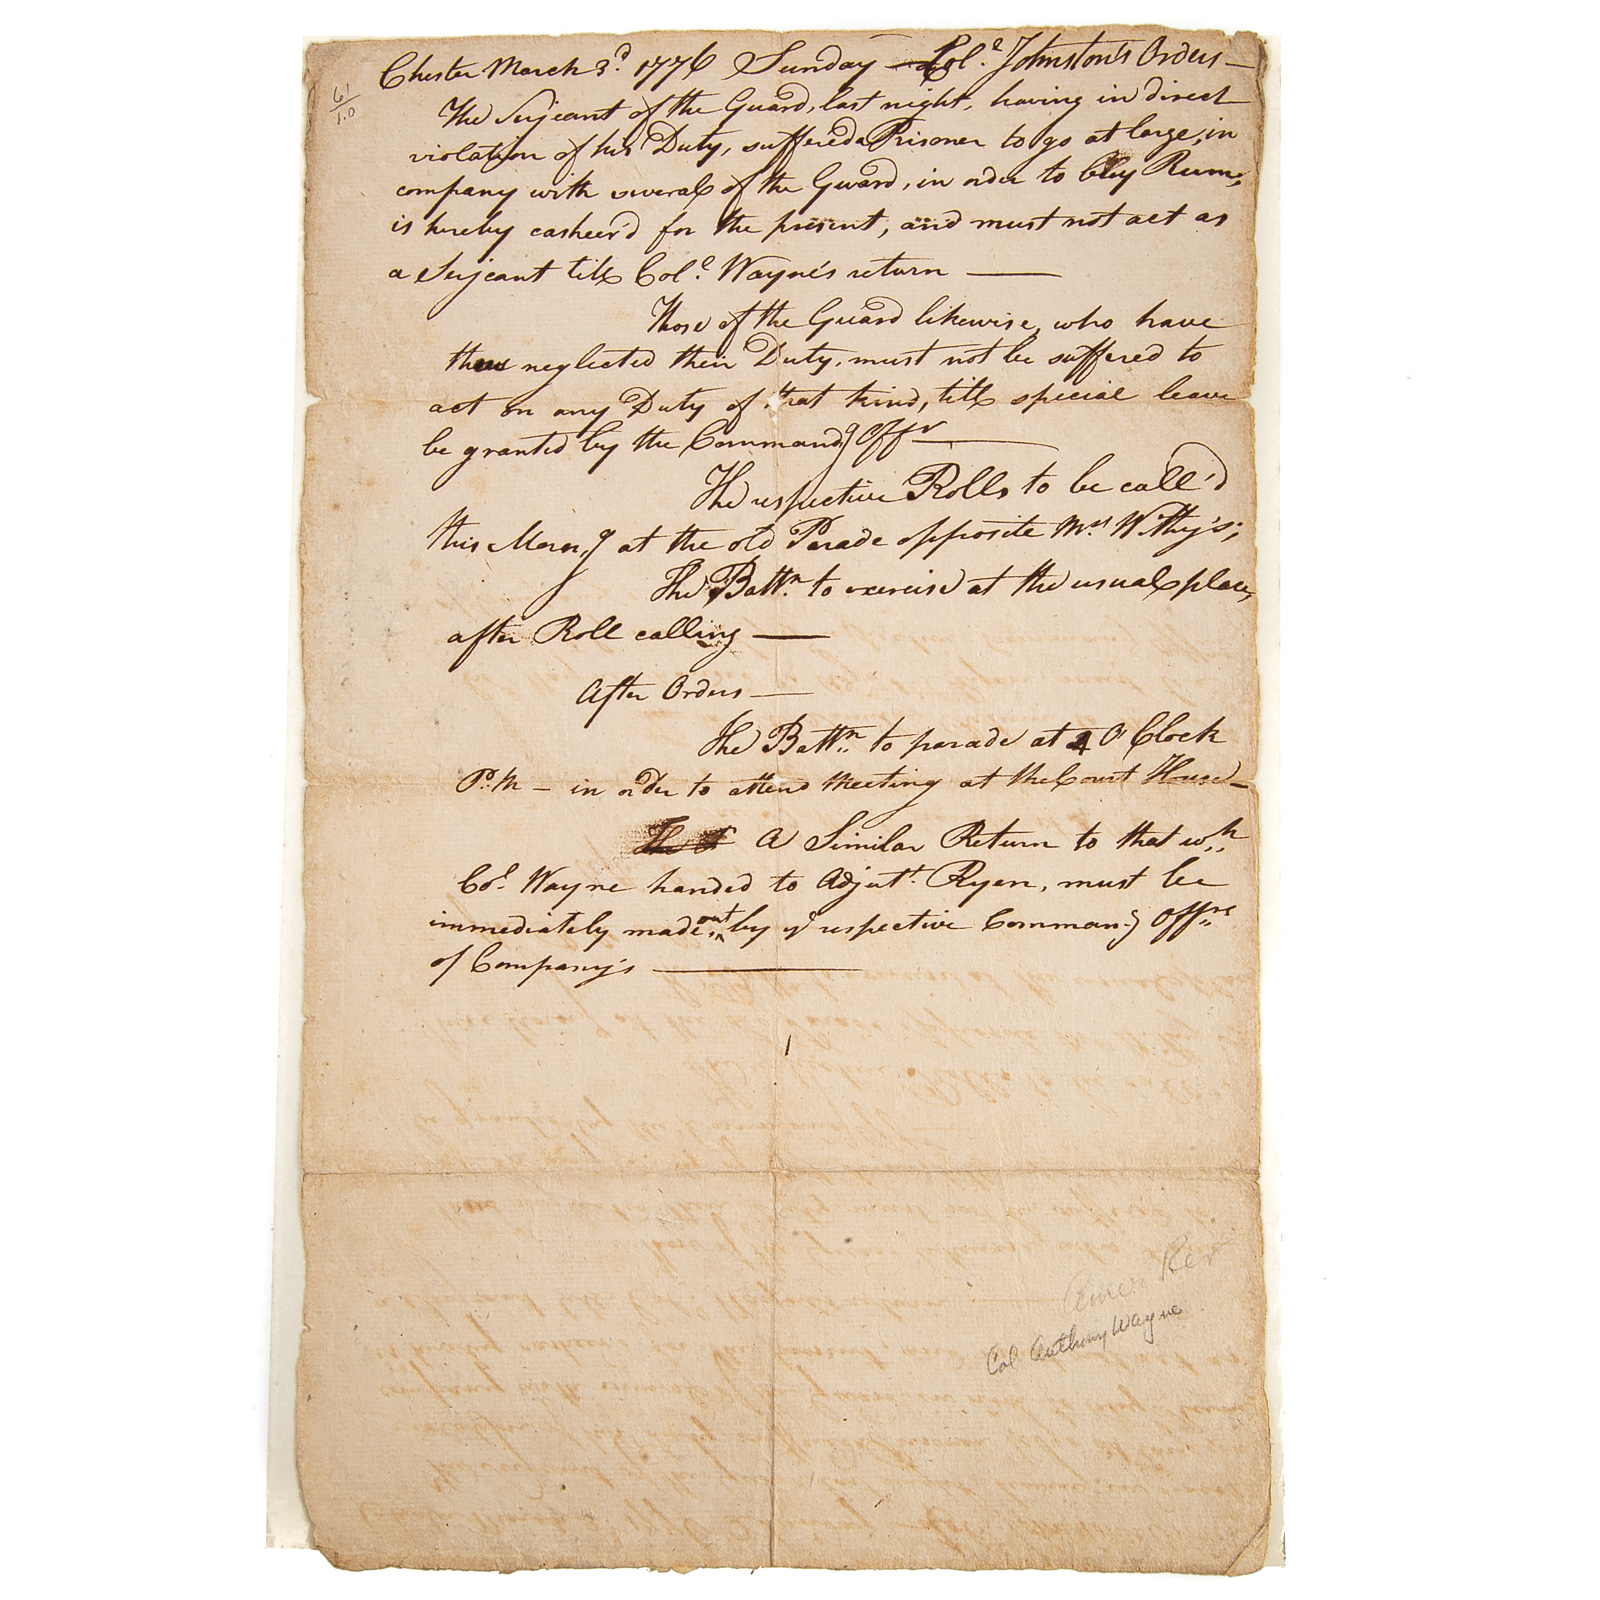 61
1.0
Chester March 3.d 1776 Sunday — Col.l Johnston's Orders —
The Serjeant of the Guard, last night, having in direct
violation of his Duty, suffered a Prisoner to go at large, in
company with several of the Guard, in order to buy Rum,
is hereby casheer'd for the present, and must not act as
a Serjeant till Col.l Wayne's return —
Those of the Guard likewise, who have
thus neglected their Duty, must not be suffered to
act on any Duty of that kind, till special leave
be granted by the Command.g Offr —
The respective Rolls to be call'd
this Morn.g at the old Parade opposite Mrs Withy's;
The Battn. to exercise at the usual place,
after Roll calling —
After Orders —
The Battn. to parade at 2 O'Clock
P.M — in order to attend Meeting at the Court House —
A Similar Return to that wh.
Col. Wayne handed to Adjut.t Ryan, must be
immediately made out by ye respective Comman.g Offrs
of Company's —
Amer. Rev
Col Anthony Wayne